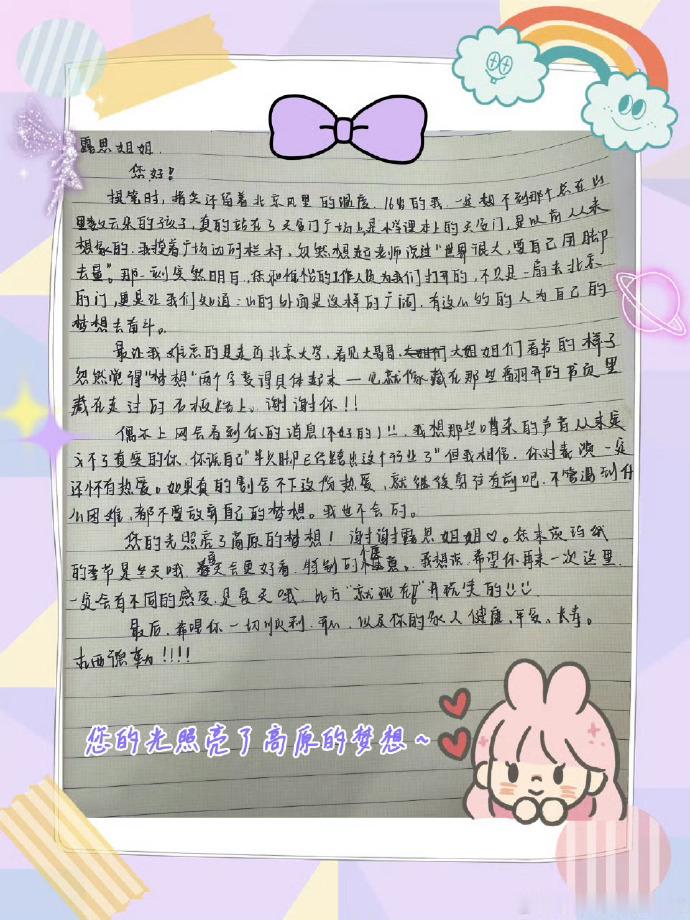 露思姐姐
您好！
提笔时，指尖还留着北京风里的温度，16岁的我，一定想不到那个总在山
里数云朵的孩子，真的站在了天安门广场上是小学课本上的天安门，是以前从来
想象的，我摸着广场边的栏杆，忽然想起老师说过"世界很大，要自己用脚
去量"。那一刻突然明白，你和植恰的工作人员为我们打开的，不只是一扇去北京
的门，更是让我们知道：山的外面是这样的广阔，有这么多的人为自己的
梦想去奋斗。
最让我难忘的是走西北京大学，看见大哥哥、大姐姐们看书的样子
忽然觉得"梦想"两个字变得具体起来—就像藏在那些翻开的书页里
藏在走过的石板路上，谢谢你！！
偶尔上网会看到你的消息(不好的)!!，我想那些嘈杂的声音从来定
义不了真实的你，你说自己"半只脚已经踏出这个行业了"但我相信，你对表演一定
还怀有热爱。如果真的割舍不下这份热爱，就继续勇往直前吧，不管遇到什
么困难，都不要放弃自己的梦想。我也不会的。
您的光照亮了高原的梦想！谢谢露思姐姐♡。您来应该
的季节是冬天哦，夏天会更好看，特别的惬意。我想说，希望你再来一次这里
一定会有不同的感受，是夏天哦，比方"就现在"开玩笑的!!
最后，希望你一切顺利，开心，以及你的家人健康、平安、长寿。
吉西德勒!!!!
您的光照亮了高原的梦想~